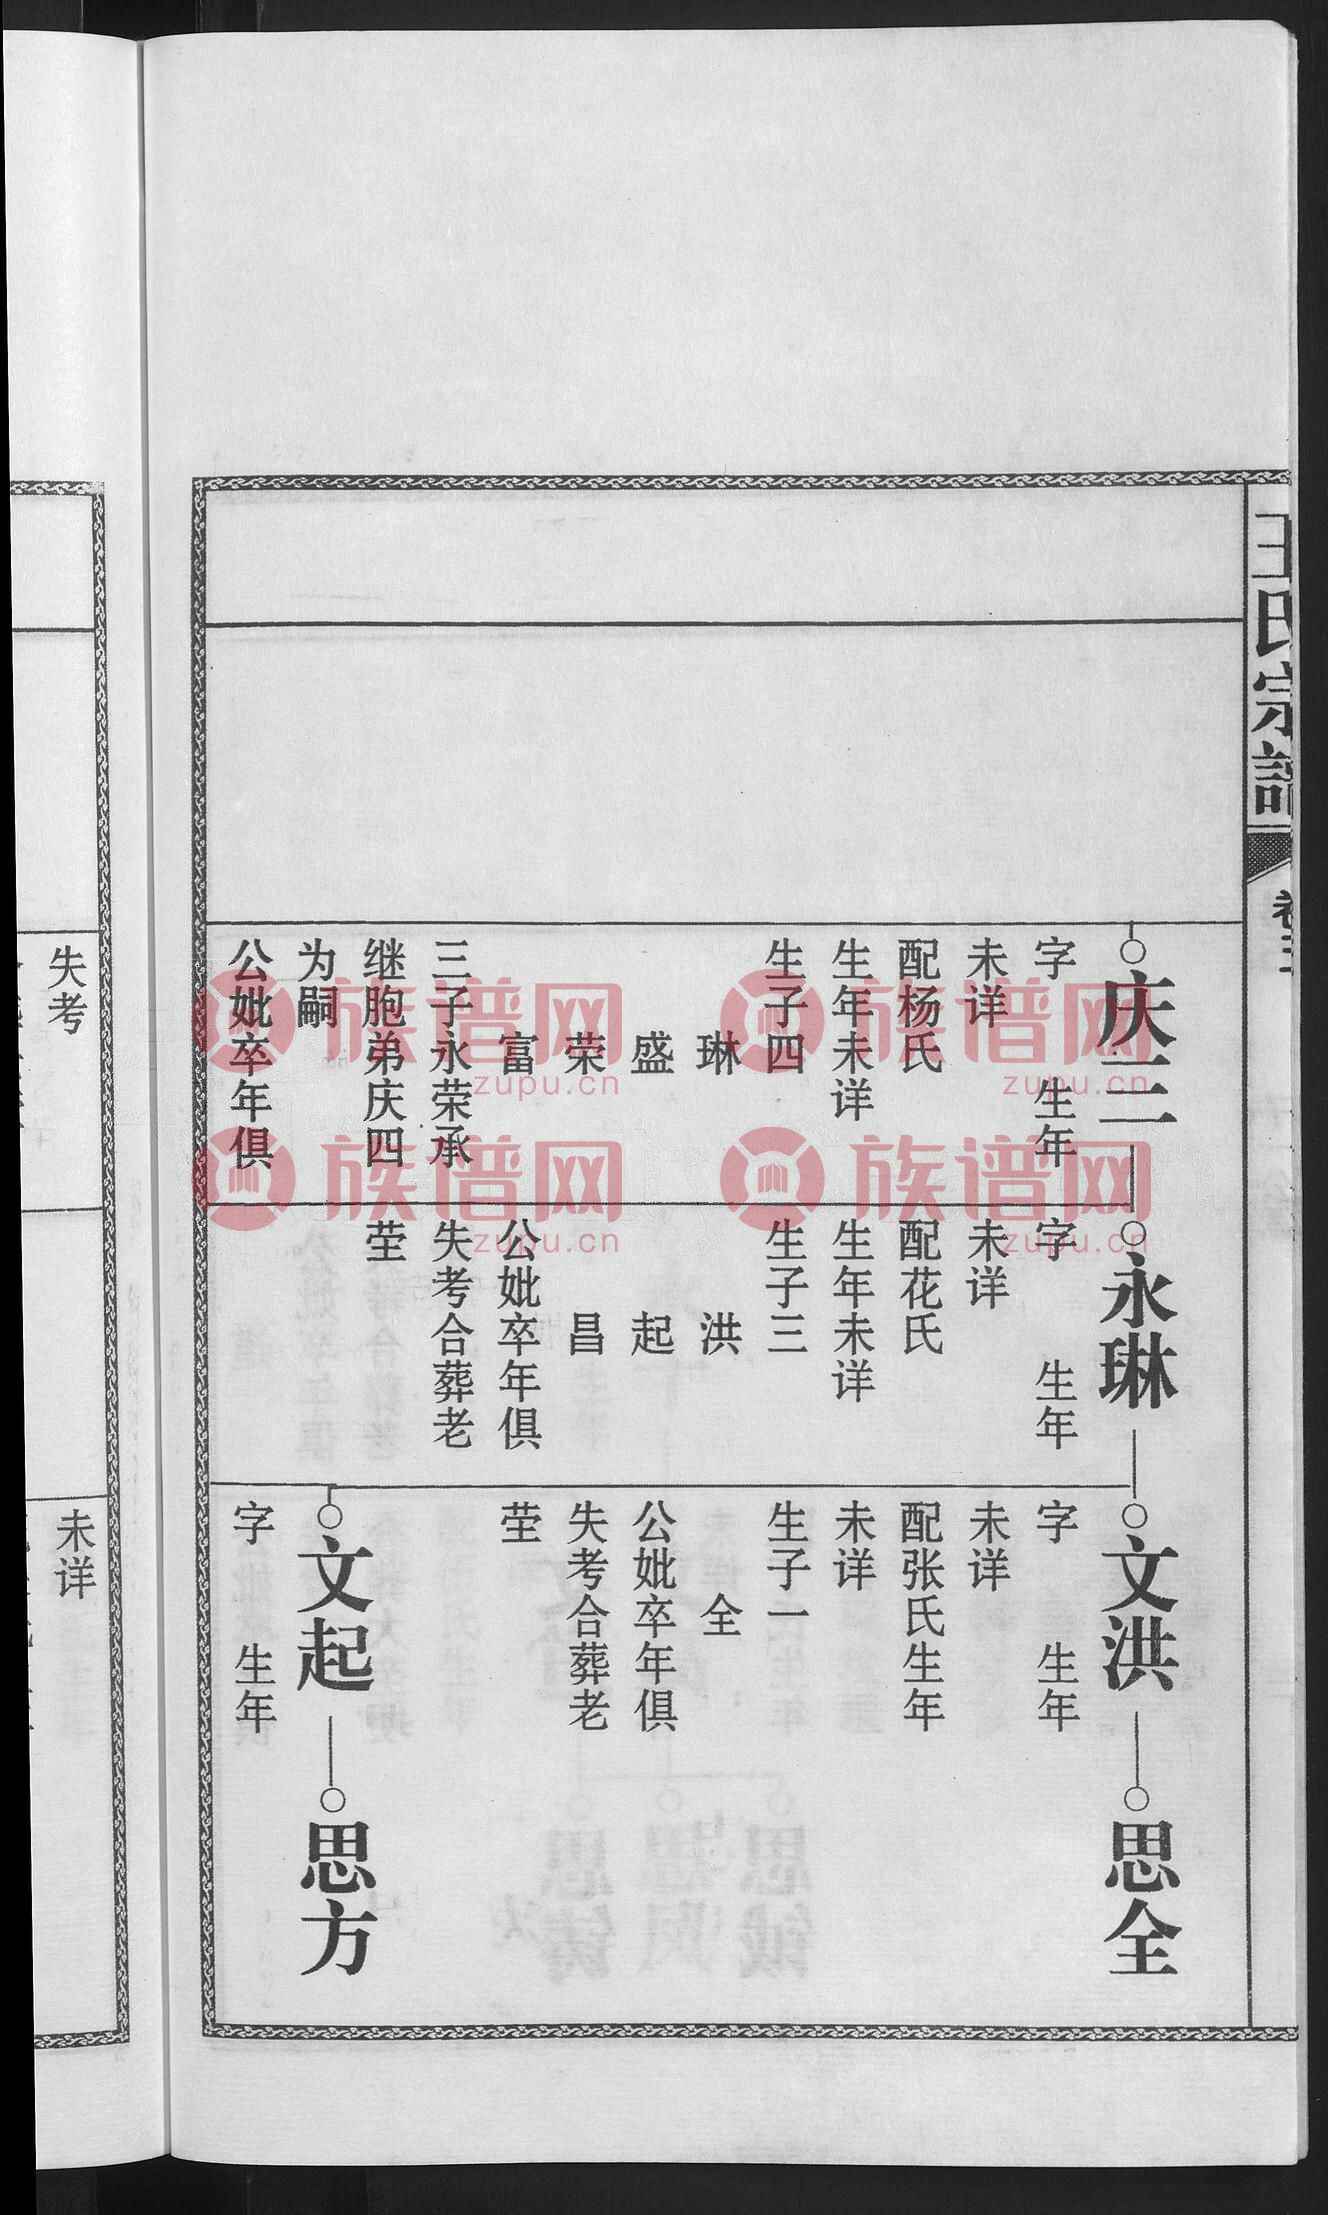 王氏宗譜
卷三
庆三
字　生年
未详
配杨氏
生年未详
生子四
琳
盛
荣
富
三子永荣承
继胞弟庆四
为嗣
公妣卒年俱
永琳
字　生年
未详
配花氏
生年未详
生子三
洪
起
昌
公妣卒年俱
失考合葬老
茔
文洪
字　生年
未详
配张氏生年
未详
生子一
全
公妣卒年俱
失考合葬老
茔
文起
字　生年
思全
思方
失考
未详
族谱网
zupu.cn
族谱网
zupu.cn
族谱网
zupu.cn
族谱网
zupu.cn